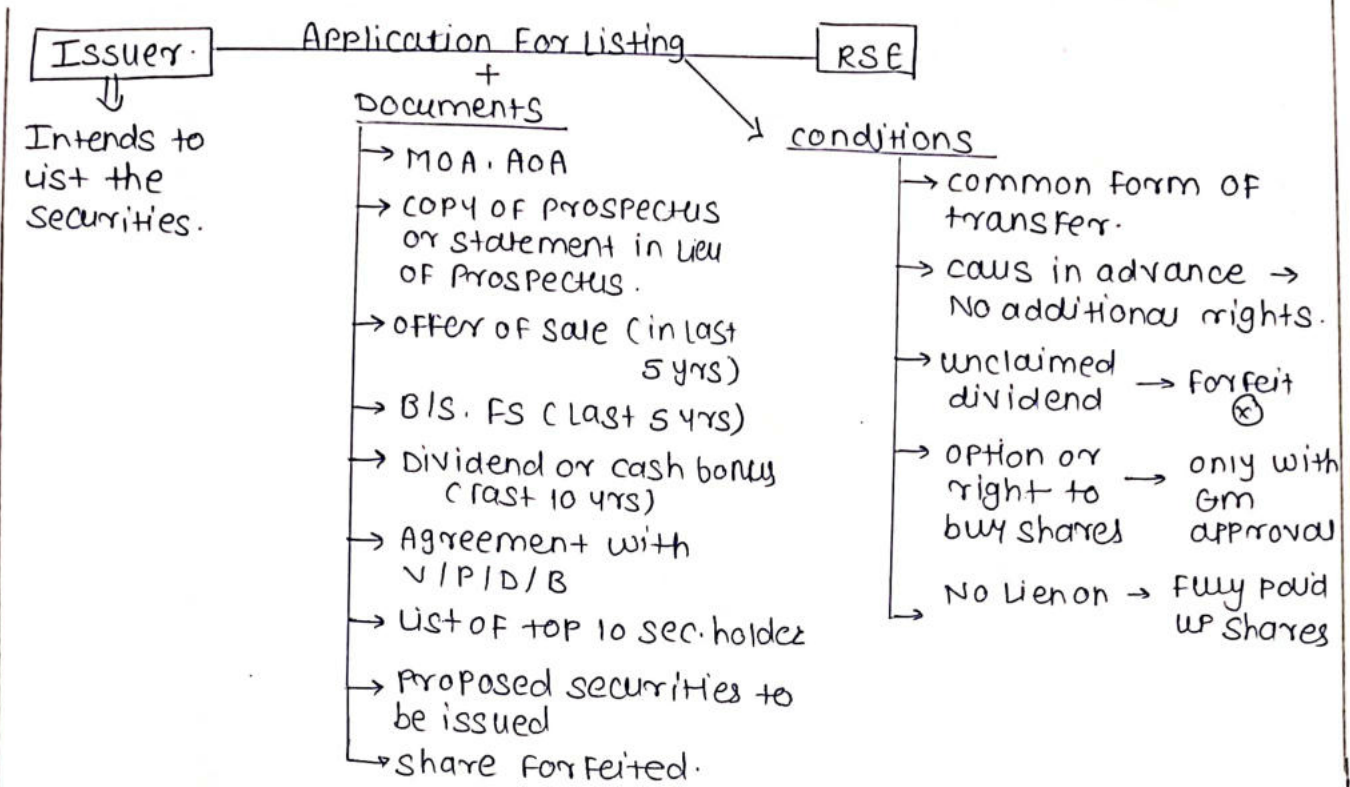 Issuer.
Application For Listing
RSE
+
Intends to
list the
securities.
Documents
→ MOA. AOA
→ copy of prospectus
or statement in lieu
of prospectus.
→ offer of sale (in last
5 yrs)
→ B/S. FS (Last 5 yrs)
→ Dividend or cash bonus
(last 10 yrs)
→ Agreement with
V/P/D/B
→ List of top 10 sec. holder
→ proposed securities to
be issued
→ share forfeited.
conditions
→ common form of
transfer.
→ calls in advance →
No additional rights.
→ unclaimed
dividend → forfeit
ⓧ
→ option or
right to
buy shares → only with
GM
approval
→ No Lien on → fully paid
up shares